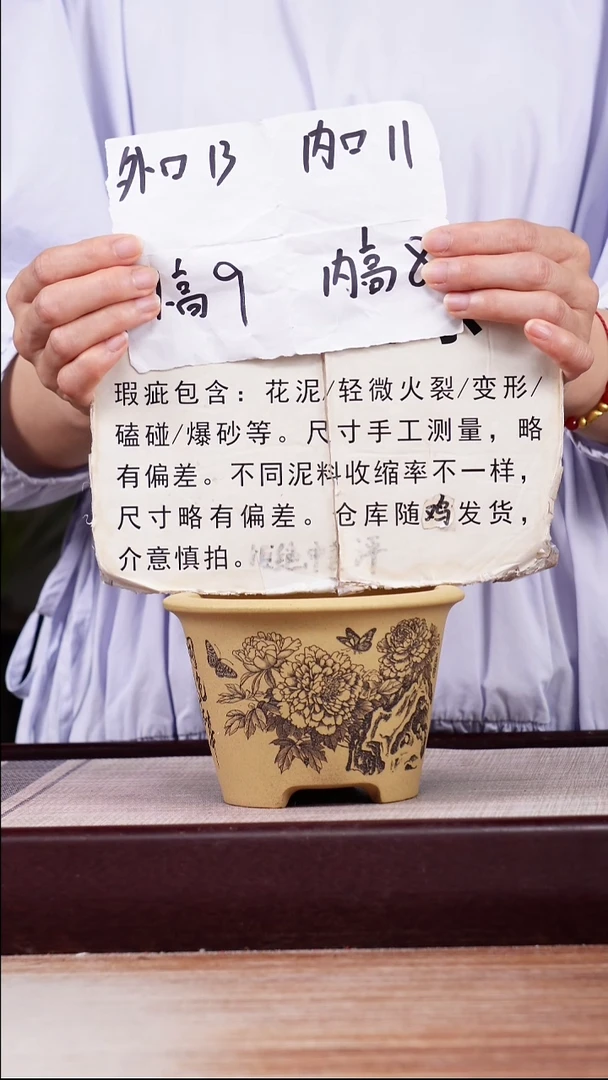 外口13 内口11
高9 内高8
瑕疵包含：花泥/轻微火裂/变形/
磕碰/爆砂等。尺寸手工测量，略
有偏差。不同泥料收缩率不一样，
尺寸略有偏差。仓库随鸡发货，
介意慎拍。